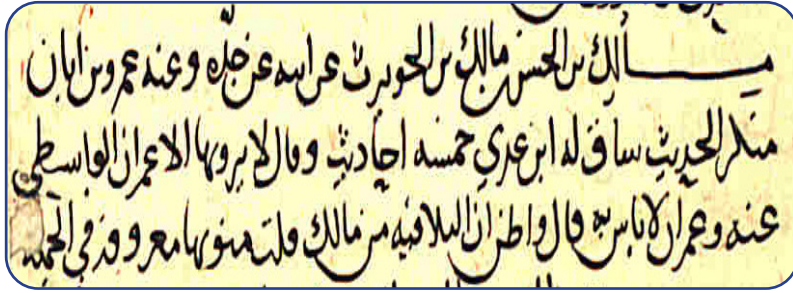 مالك بن الحسن بن مالك بن الحويرث عن ابيه عن جده وعنه عمرو بن ابان
منكر الحديث ساق له ابن عدي خمسه احاديث وقال لا يرويها الا عمران الواسطي
عنه وعمران لا باس به قال واظن ان البلا فيه من مالك قلت متونها معروفه في الجمله